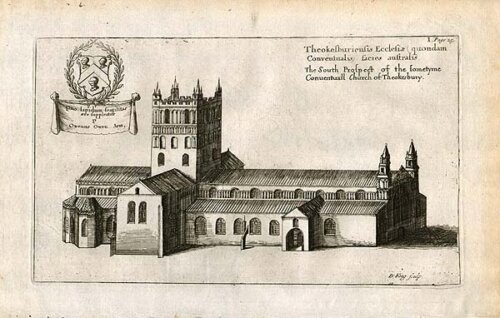 I. Page 25.
Theokesburiensis Ecclesiæ (quondam
Conventualis) facies australis
The South Prospect of the sometyme
Conventuall Church of Theokesbury.
lapidum
P
Owenus Owen
D. King sculp.